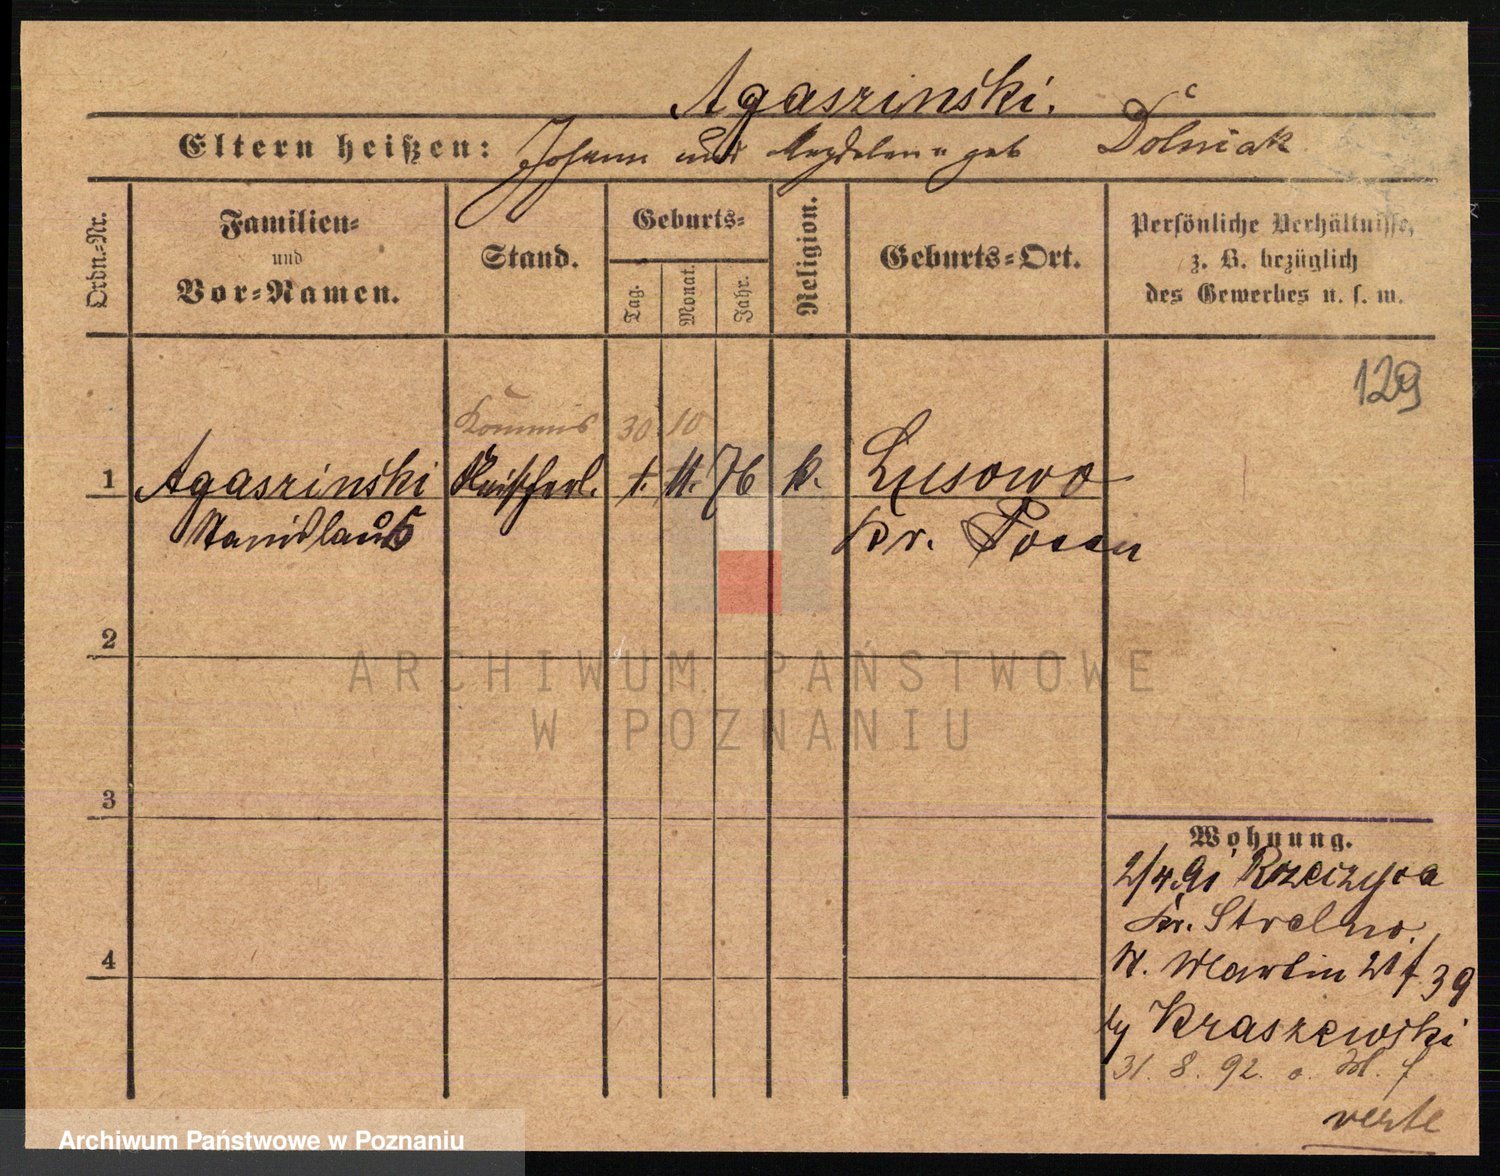 Agaszinski.
Eltern heißen: Johann und Magdalena geb Dolniak
Ordn.-Nr.
Familien-
und
Vor-Namen.
Stand.
Geburts-
Tag.
Monat.
Jahr.
Religion.
Geburts-Ort.
Persönliche Verhältnisse,
z. B. bezüglich
des Gewerbes u. s. w.
129
Kommis 30 10
1 Agaszinski 1. 11. 76 k. Lusowo
Stanislaus Kr. Posen
2
ARCHIWUM PAŃSTWOWE
W POZNANIU
3
Wohnung.
2/4 91 Rzeczyca
Kr. Strelno
St. Martin 21/ 39
by Kraszewski
31. 8. 92
4
verte
Archiwum Państwowe w Poznaniu